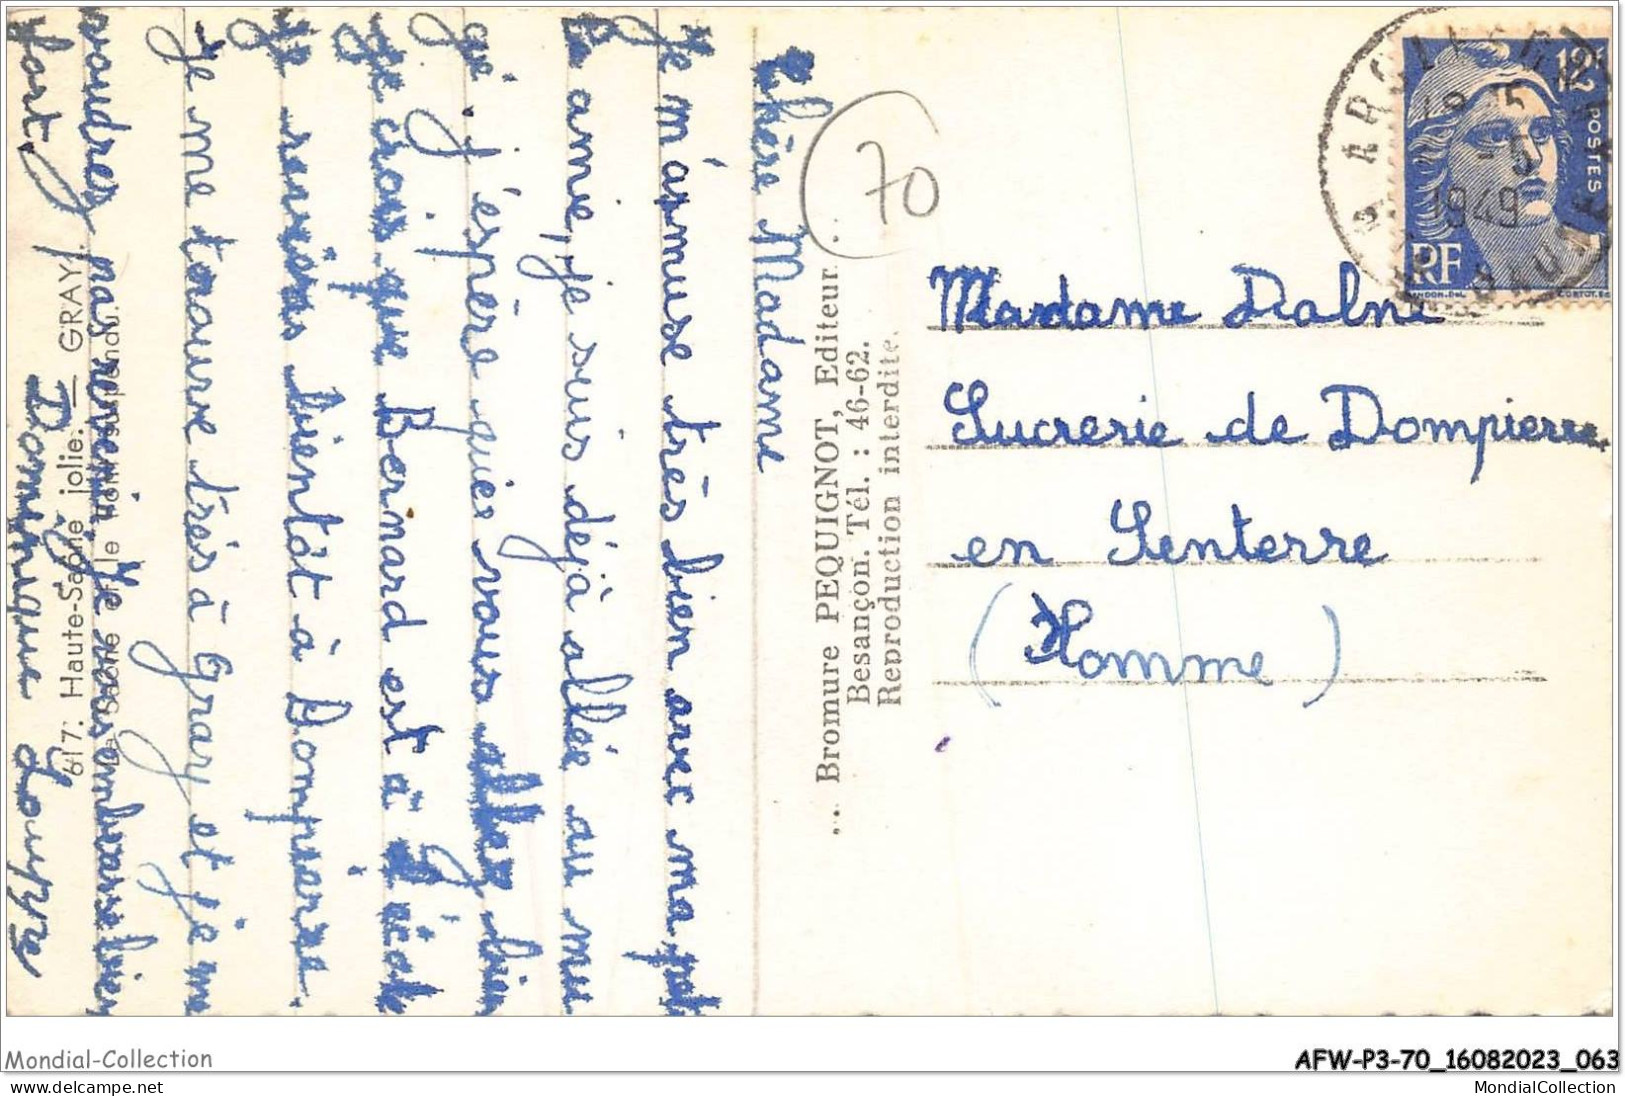 Chère Madame
Je m'amuse très bien avec ma pet
ame, je suis déjà allée au
j'espère que vous allez bien
Je crois que Bernard est à l'école
Je reviens bientôt à Dompierre.
Je me trouve très à Gray et je ne
voudrez pas revenir, Je vous embrasse bien
fort Dominique
617. Haute-Saône jolie. — GRAY.
La Saône et le Pont suspendu.
... Bromure PEQUIGNOT, Editeur ...
Besançon. Tél. : 46-62.
Reproduction interdite.
70
12F
POSTES
RF
GANDON.DEL
CORTOT.SC
1949
HAUTE
Madame Dalne
Sucrerie de Dompierre
en Senterre
(Somme)
Mondial-Collection
AFW-P3-70_16082023_063
www.delcampe.net
MondialCollection